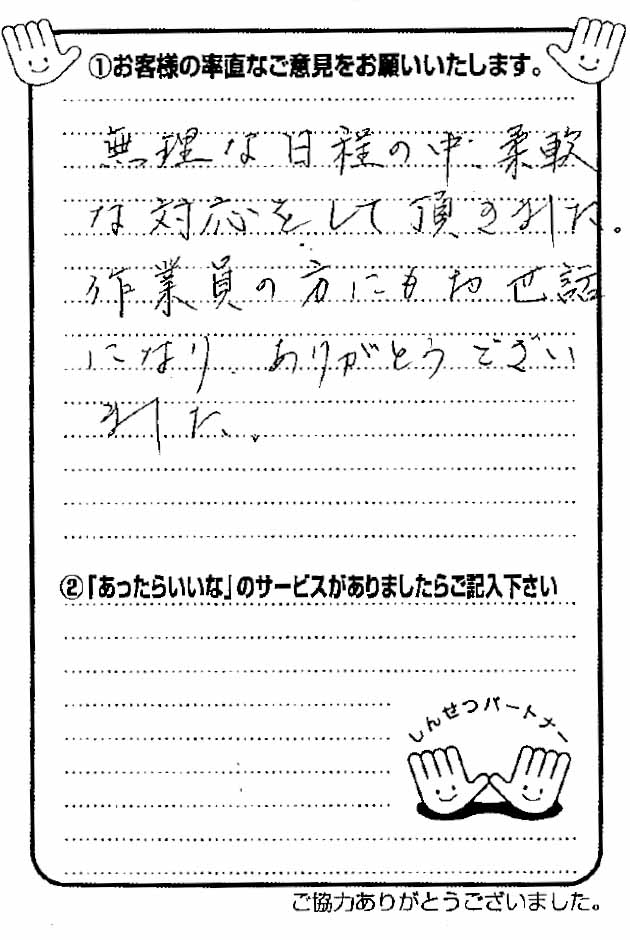 ①お客様の率直なご意見をお願いいたします。
無理な日程の中、柔軟
な対応をして頂きました。
作業員の方にもお世話
になり、ありがとうござい
ました。
②「あったらいいな」のサービスがありましたらご記入下さい
しんせつパートナー
ご協力ありがとうございました。